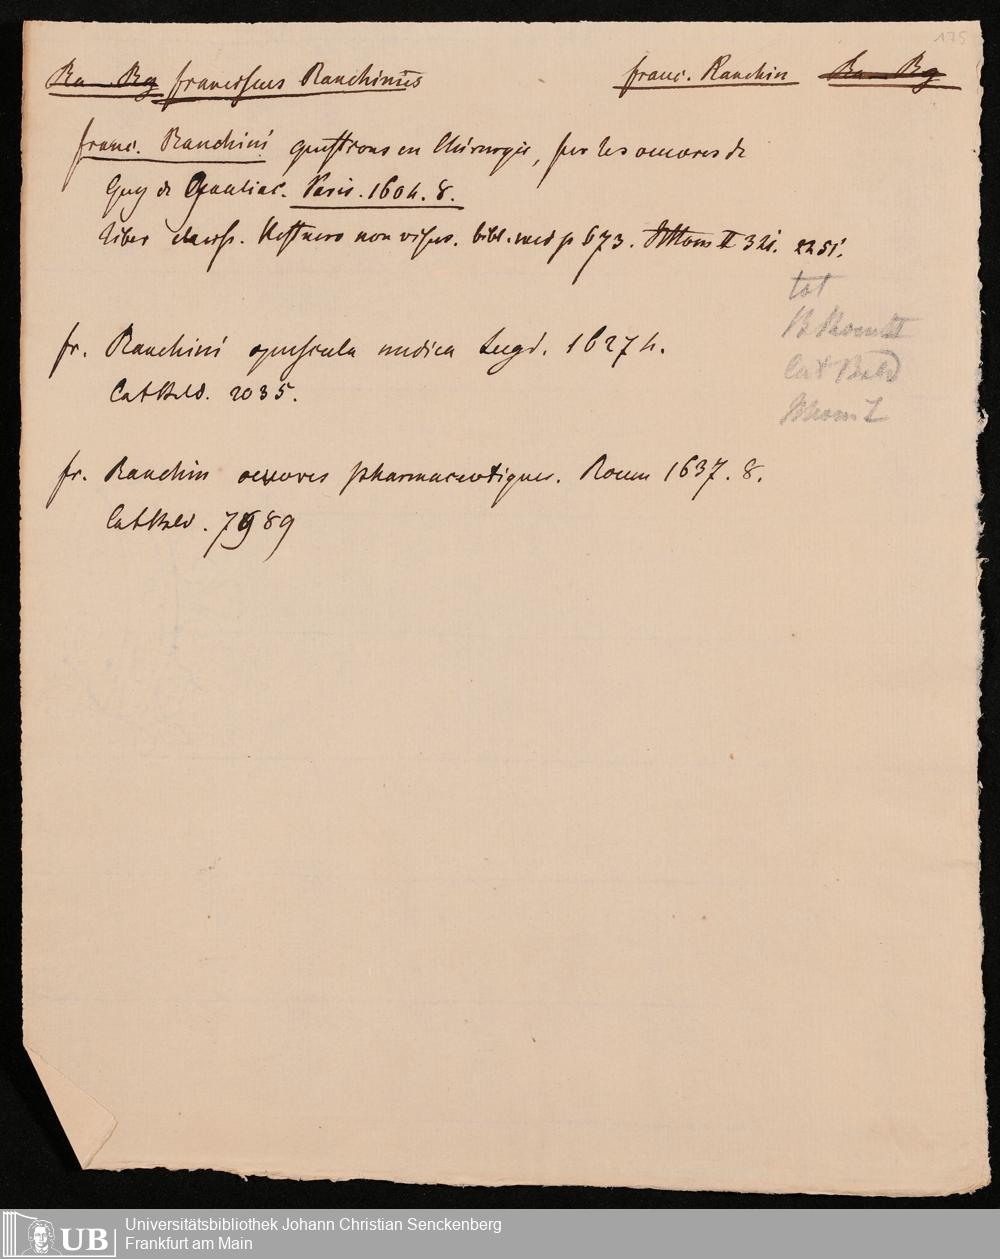 175
Ra – Rg franciscus Ranchinus franc. Ranchin Ra – Rg
franc. Ranchini questions en Chirurgie, sur les oeuvres de
Guy de Cauliac. Paris. 1604. 8.
liber non visus. bibl. med p 673. II 321. 2251.
tot
B Thom II
Cat Bald
Thom I
fr. Ranchini opuscula medica Lugd. 1627 4.
Cat Bald. 2035.
fr. Ranchin oeuvres pharmaceutiques. Rouen 1637. 8.
Cat Bald. 7989
UB Universitätsbibliothek Johann Christian Senckenberg
Frankfurt am Main